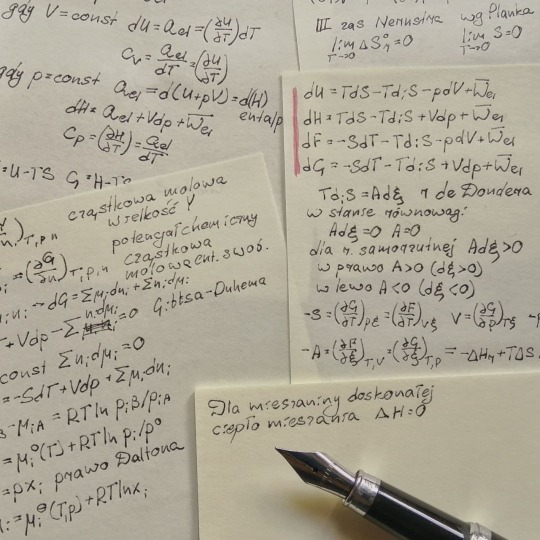 gdy V=const dU=Qel=(∂U/∂T)dT
Cv=Qel/dT=(∂U/∂T)
gdy p=const Qel=d(U+pV)=d(H)
entalp
dH=Qel+Vdp+Wel
Cp=(∂H/∂T)=Qel/dT
=U-TS G=H-TS
III zas Nernsta wg Plancka
lim ΔS=0 lim S=0
T→0 T→0
dU=TdS-TdiS-pdV+Wel
dH=TdS-TdiS+Vdp+Wel
dF=-SdT-TdiS-pdV+Wel
dG=-SdT-TdiS+Vdp+Wel
TdiS=Adξ r de Dondera
w stanie równowagi
Adξ=0 A=0
dla r. samorzutnej Adξ>0
w prawo A>0 (dξ>0)
w lewo A<0 (dξ<0)
-S=(∂G/∂T)pξ=(∂F/∂T)Vξ V=(∂G/∂p)Tξ
-A=(∂F/∂ξ)T,V=(∂G/∂ξ)T,p=-ΔHr+TΔS
cząstkowa molowa
wielkość Y
)T,p,n
potencjał chemiczny
=(∂G/∂n)T,p,n cząstkowa
molowa ent. swob.
dG=Σμidni+Σnidμi
+Vdp-Σnidμi=0 Gibbsa-Duhema
const Σnidμi=0
=-SdT+Vdp+Σμidni
-μiA=RTln piB/piA
=μi°(T)+RTln pi/p°
=pxi prawo Daltona
=μi°(T,p)+RTlnxi
Dla mieszaniny doskonałej
ciepło mieszania ΔH=0